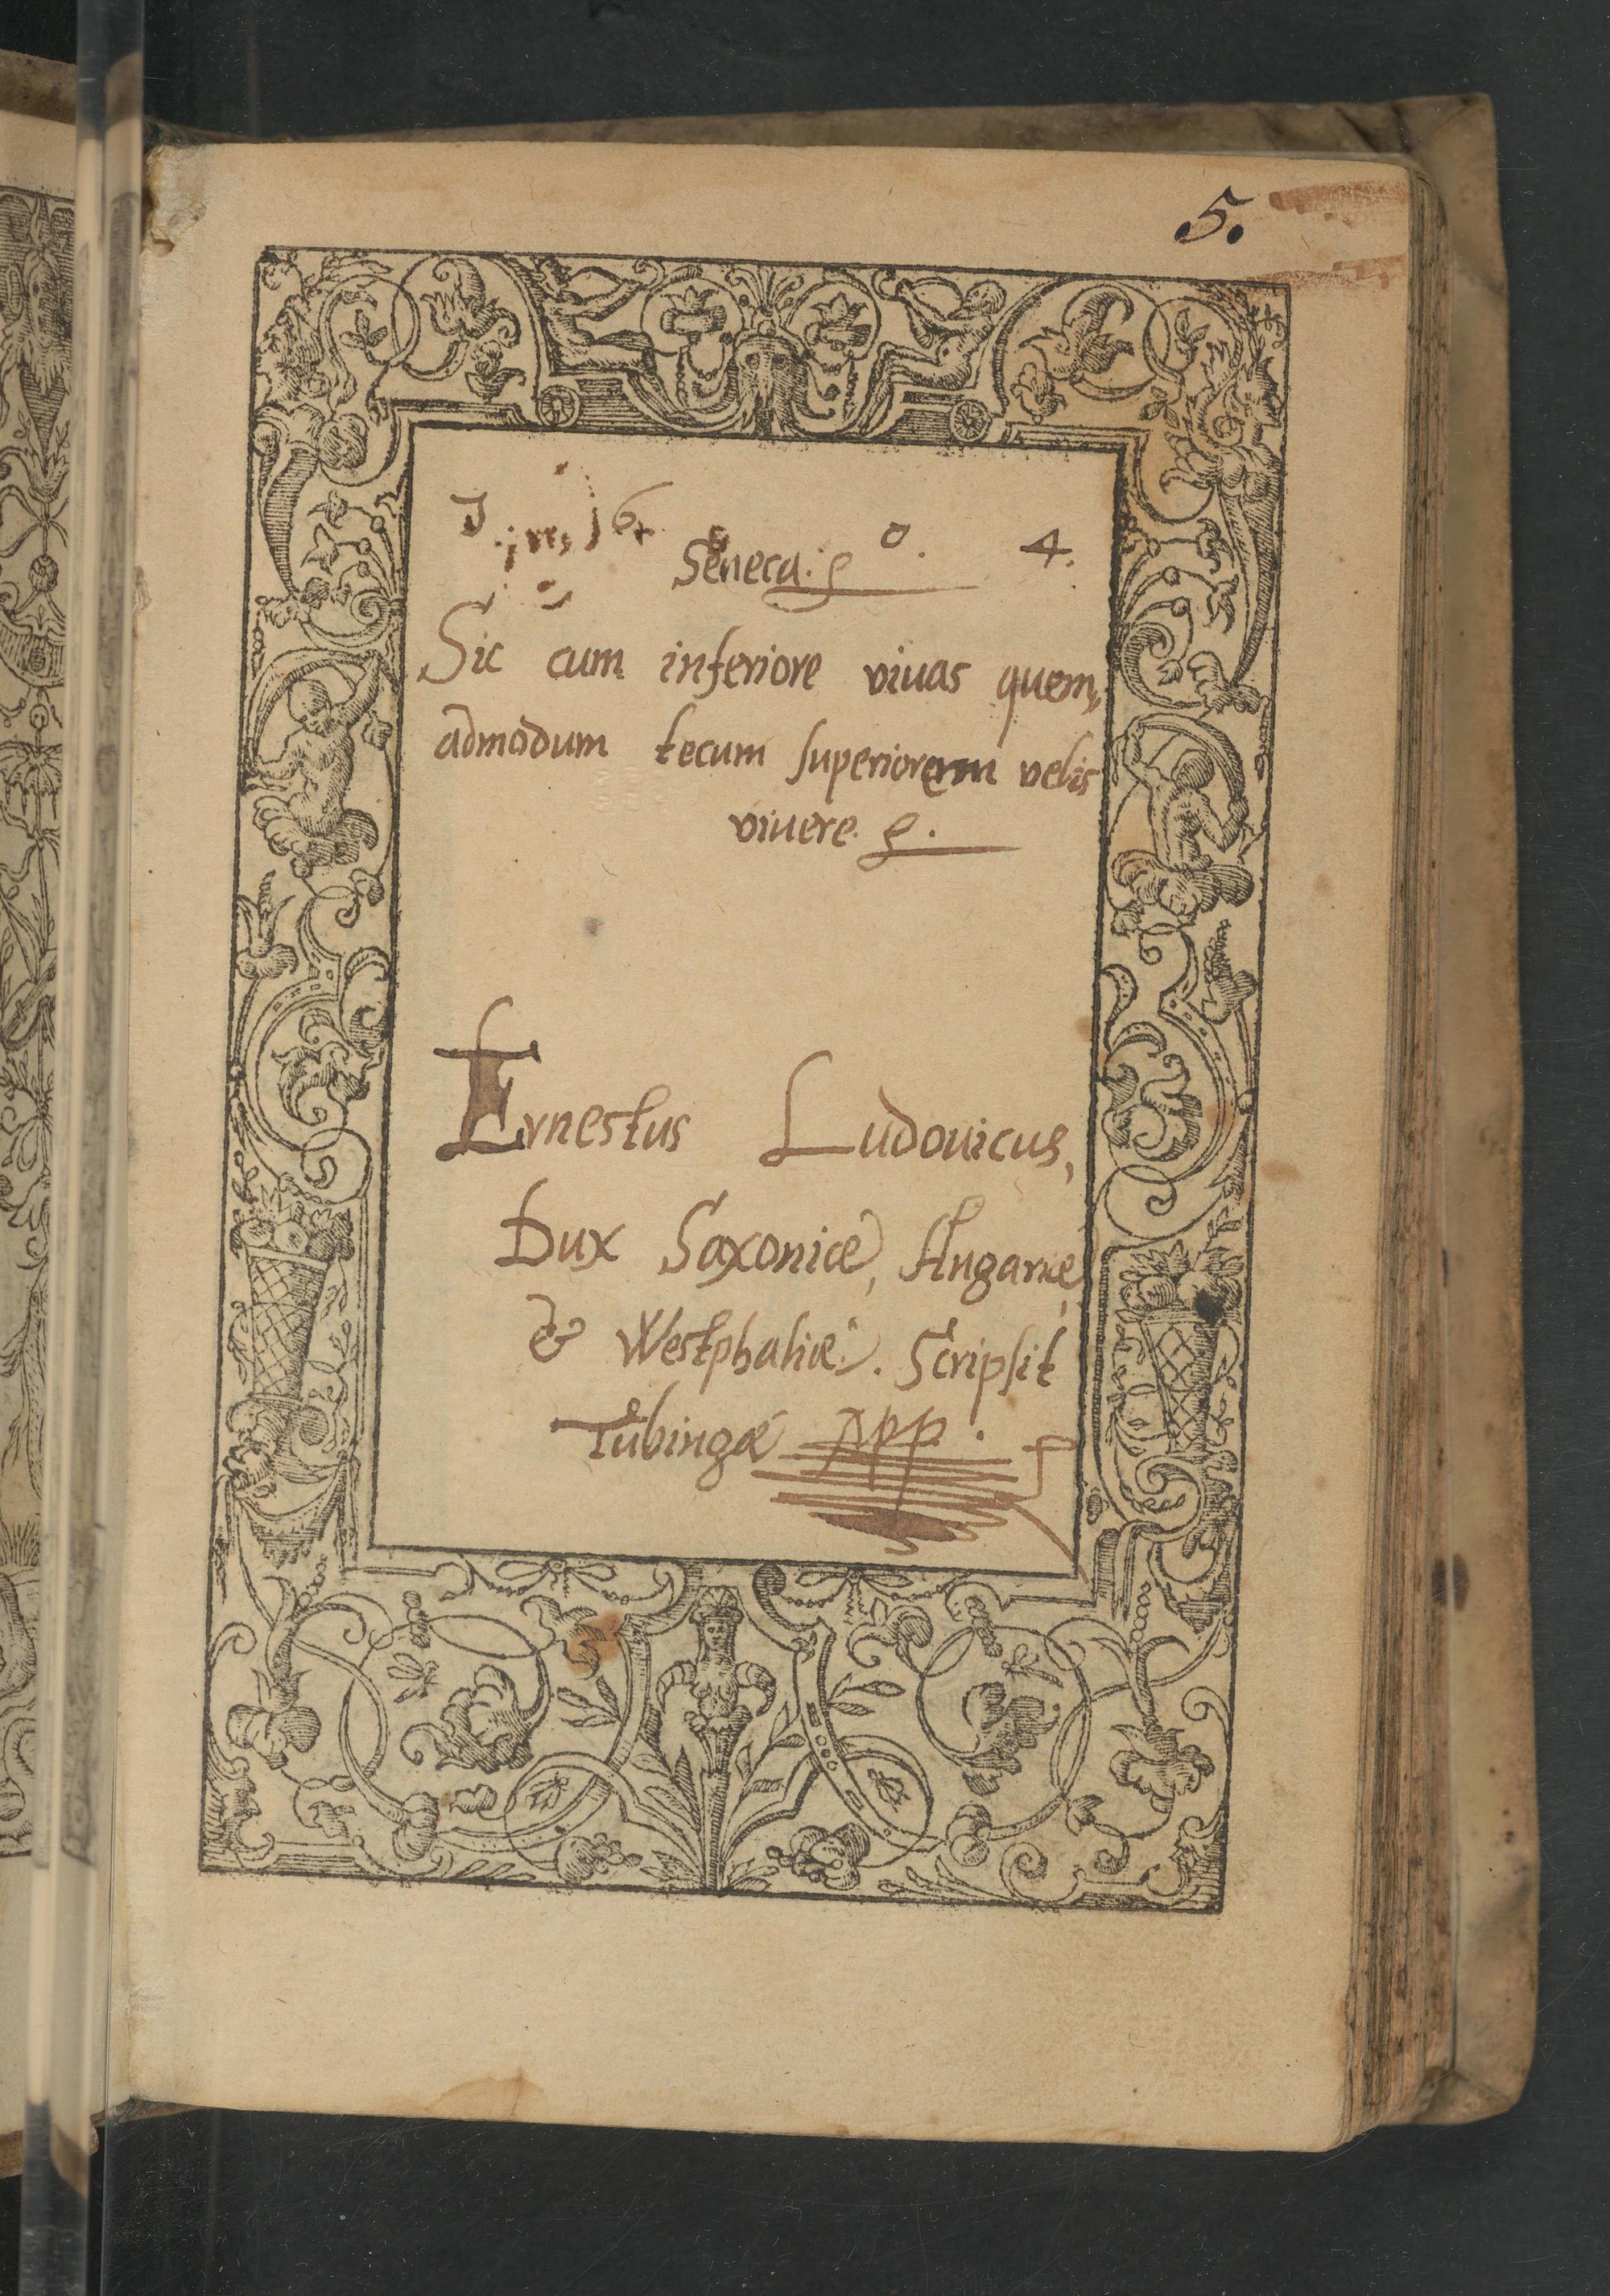 5.
16 0. 4.
Seneca.
Sic cum inferiore viuas quem,
admodum tecum superiorem velis
viuere.
Ernestus Ludouicus,
Dux Saxoniæ, Angariæ,
& Westphaliæ. Scripsit
Tubingæ mpp.